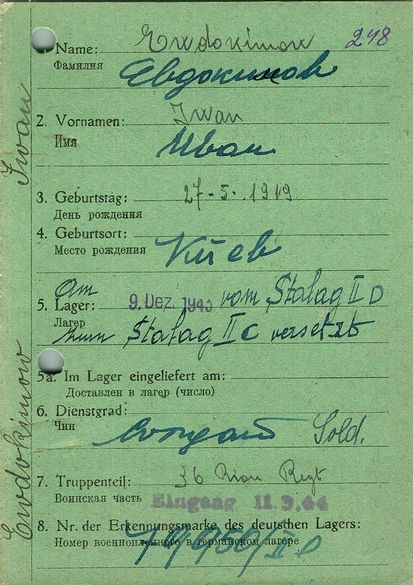 1. Name: Ewdokimow 248
Фамилия Евдокимов
2. Vornamen: Iwan
Имя Иван
3. Geburtstag: 27-5-1919
День рождения
4. Geburtsort:
Место рождения Киев
Am 9. Dez. 1943 vom Stalag II D
5. Lager:
Лагерь zum Stalag II C versetzt
5a. Im Lager eingeliefert am:
Доставлен в лагерь (число)
6. Dienstgrad:
Чин солдат Sold.
7. Truppenteil: 36
Воинская часть Eingang 11.9.44
8. Nr. der Erkennungsmarke des deutschen Lagers:
Номер военнопленного в германском лагере II D
Ewdokimow Iwan